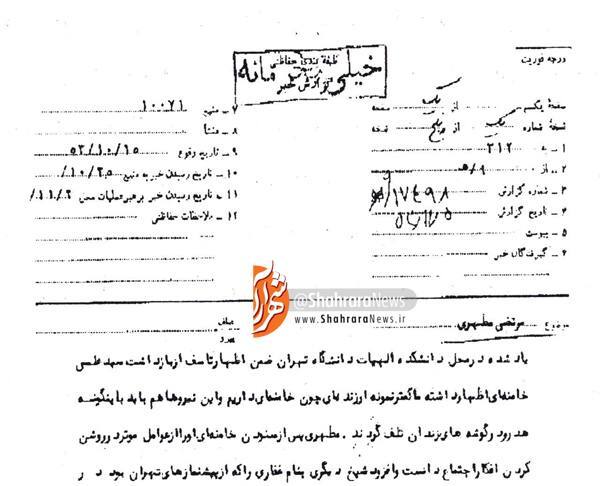 درجه فوریت
طبقه بندی حفاظتی
خیلی محرمانه
گزارش خبر
صفحه یکم از یک صفحه
نسخه شماره یک از پنج نسخه
۱ ـ به ۳۱۲
۲ـ از ۹/ه
۳ ـ شماره گزارش ۱۷۴۹۸/
۴ ـ تاریخ گزارش
۵ ـ پیوست
۶ ـ گیرندگان خبر
۷ ـ منبع ۱۰۰۷۱
۸ ـ منشأ
۹ ـ تاریخ وقوع ۵۲/۱۰/۱۵
۱۰ ـ تاریخ رسیدن خبر به منبع ۱۰/۲۵/
۱۱ ـ تاریخ رسیدن خبر به رهبر عملیات ۱۱/۲/
۱۲ ـ ملاحظات حفاظتی
شهرآرا
@ShahraraNews
www.ShahraraNews.ir
موضوع مرتضی مطهری
عطف
پیرو
یاد شده در محل دانشکده الهیات دانشگاه تهران ضمن اظهار تاسف از بازداشت سید علی
خامنه‌ای اظهار داشته ما کمتر نمونه ارزنده‌ای چون خامنه‌ای داریم و این نیروها هم باید باینگونه
هدر رود و گوشه های زندان تلف گردند . مطهری پس از ستودن خامنه‌ای او را از عوامل موثر در روشن
کردن افکار اجتماع دانست و افزود شیخ دیگری بنام غفاری را که از پیشنمازهای تهران بود در